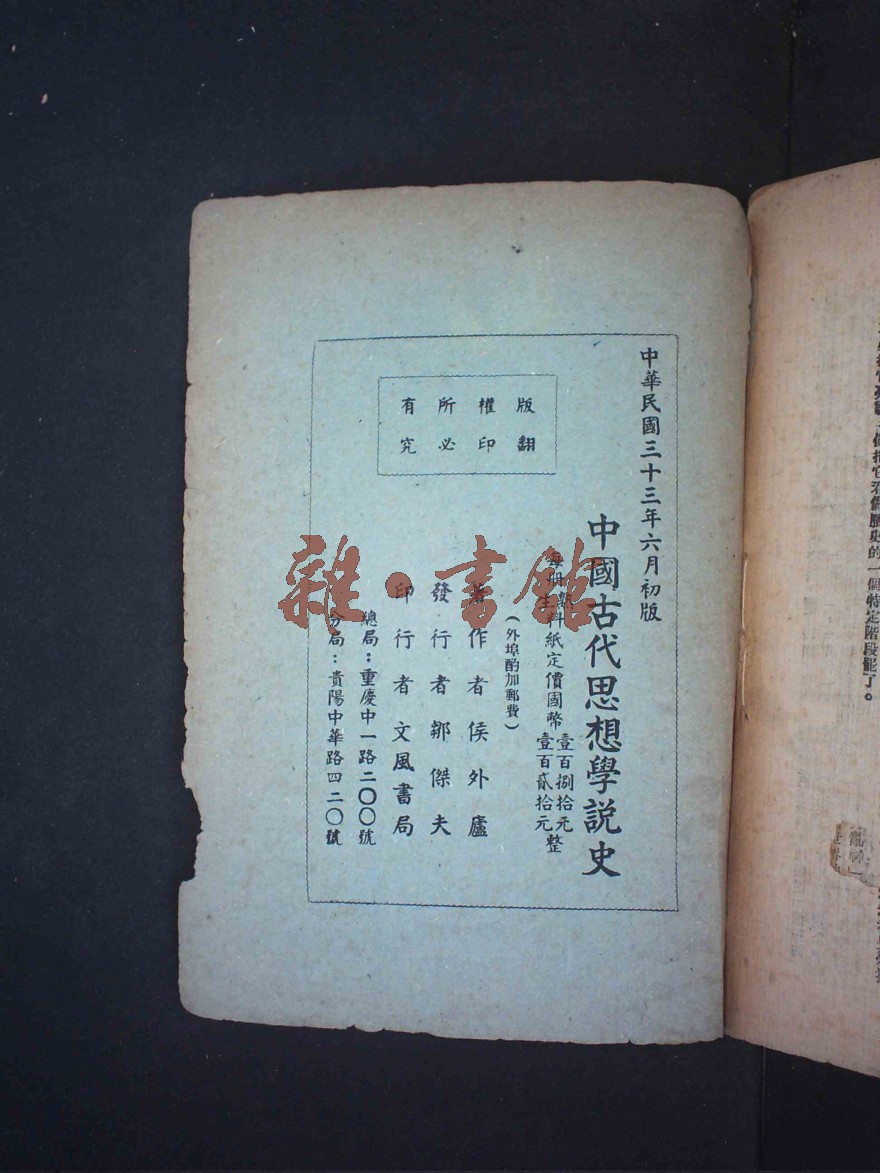 中華民國三十三年六月初版
中國古代思想學説史
每册熟料紙定價國幣壹百捌拾元
生料紙定價國幣壹百貳拾元整
（外埠酌加郵費）
著作者侯外廬
發行者鄒傑夫
印行者文風書局
總局：重慶中一路二〇〇號
分局：貴陽中華路四二〇號
版權所有
翻印必究
雜·書館
的一個特定階段罷了。